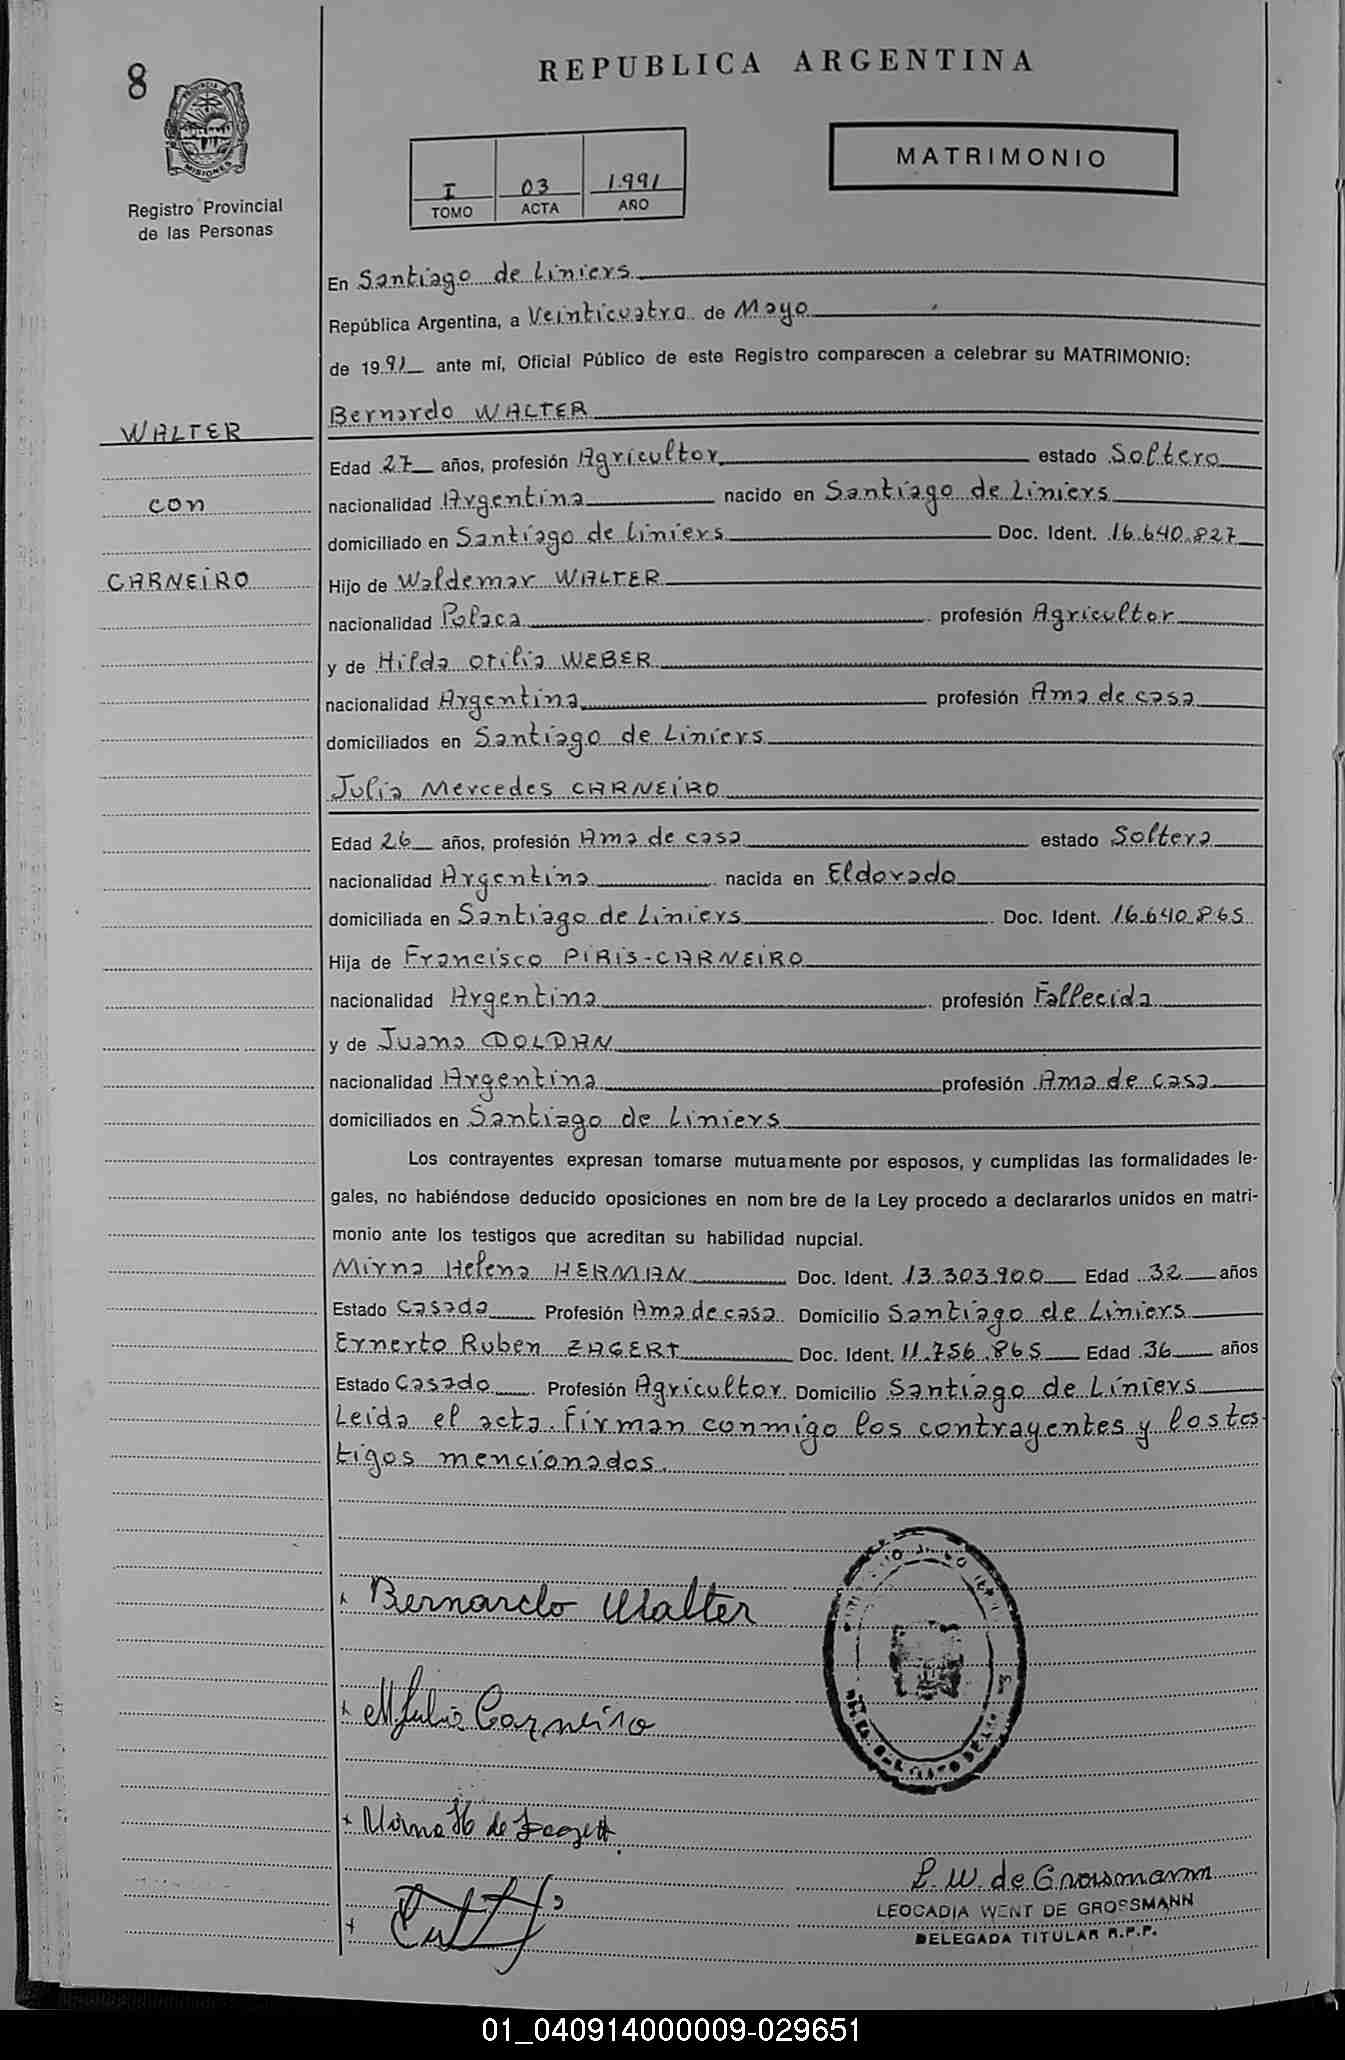 8
REPUBLICA ARGENTINA
PROVINCIA DE
MISIONES
Registro Provincial
de las Personas
MATRIMONIO
I 03 1.991
TOMO ACTA AÑO
En Santiago de Liniers
República Argentina, a Veinticuatro de Mayo
de 1991 ante mí, Oficial Público de este Registro comparecen a celebrar su MATRIMONIO:
Bernardo WALTER
WALTER
Edad 27 años, profesión Agricultor estado Soltero
con
nacionalidad Argentina nacido en Santiago de Liniers
domiciliado en Santiago de Liniers Doc. Ident. 16.640.827
CARNEIRO
Hijo de Waldemar WALTER
nacionalidad Polaca profesión Agricultor
y de Hilda Otilia WEBER
nacionalidad Argentina profesión Ama de casa
domiciliados en Santiago de Liniers
Julia Mercedes CARNEIRO
Edad 26 años, profesión Ama de casa estado Soltera
nacionalidad Argentina nacida en Eldorado
domiciliada en Santiago de Liniers Doc. Ident. 16.640.865
Hija de Francisco PIRIS-CARNEIRO
nacionalidad Argentina profesión Fallecida
y de Juana DOLDAN
nacionalidad Argentina profesión Ama de casa
domiciliados en Santiago de Liniers
Los contrayentes expresan tomarse mutuamente por esposos, y cumplidas las formalidades le-
gales, no habiéndose deducido oposiciones en nom bre de la Ley procedo a declararlos unidos en matri-
monio ante los testigos que acreditan su habilidad nupcial.
Mirna Helena HERMAN Doc. Ident. 13.303.900 Edad 32 años
Estado Casada Profesión Ama de casa Domicilio Santiago de Liniers
Ernerto Ruben Doc. Ident. 11.756.865 Edad 36 años
Estado Casado Profesión Agricultor Domicilio Santiago de Liniers
Leida el acta. Firman conmigo los contrayentes y los tes-
tigos mencionados.
x Bernardo Walter
x M Julia Carneiro
x Mirna H de
x
L. W. de Grossmann
LEOCADIA WENT DE GROSSMANN
DELEGADA TITULAR R.P.P.
01_040914000009-029651